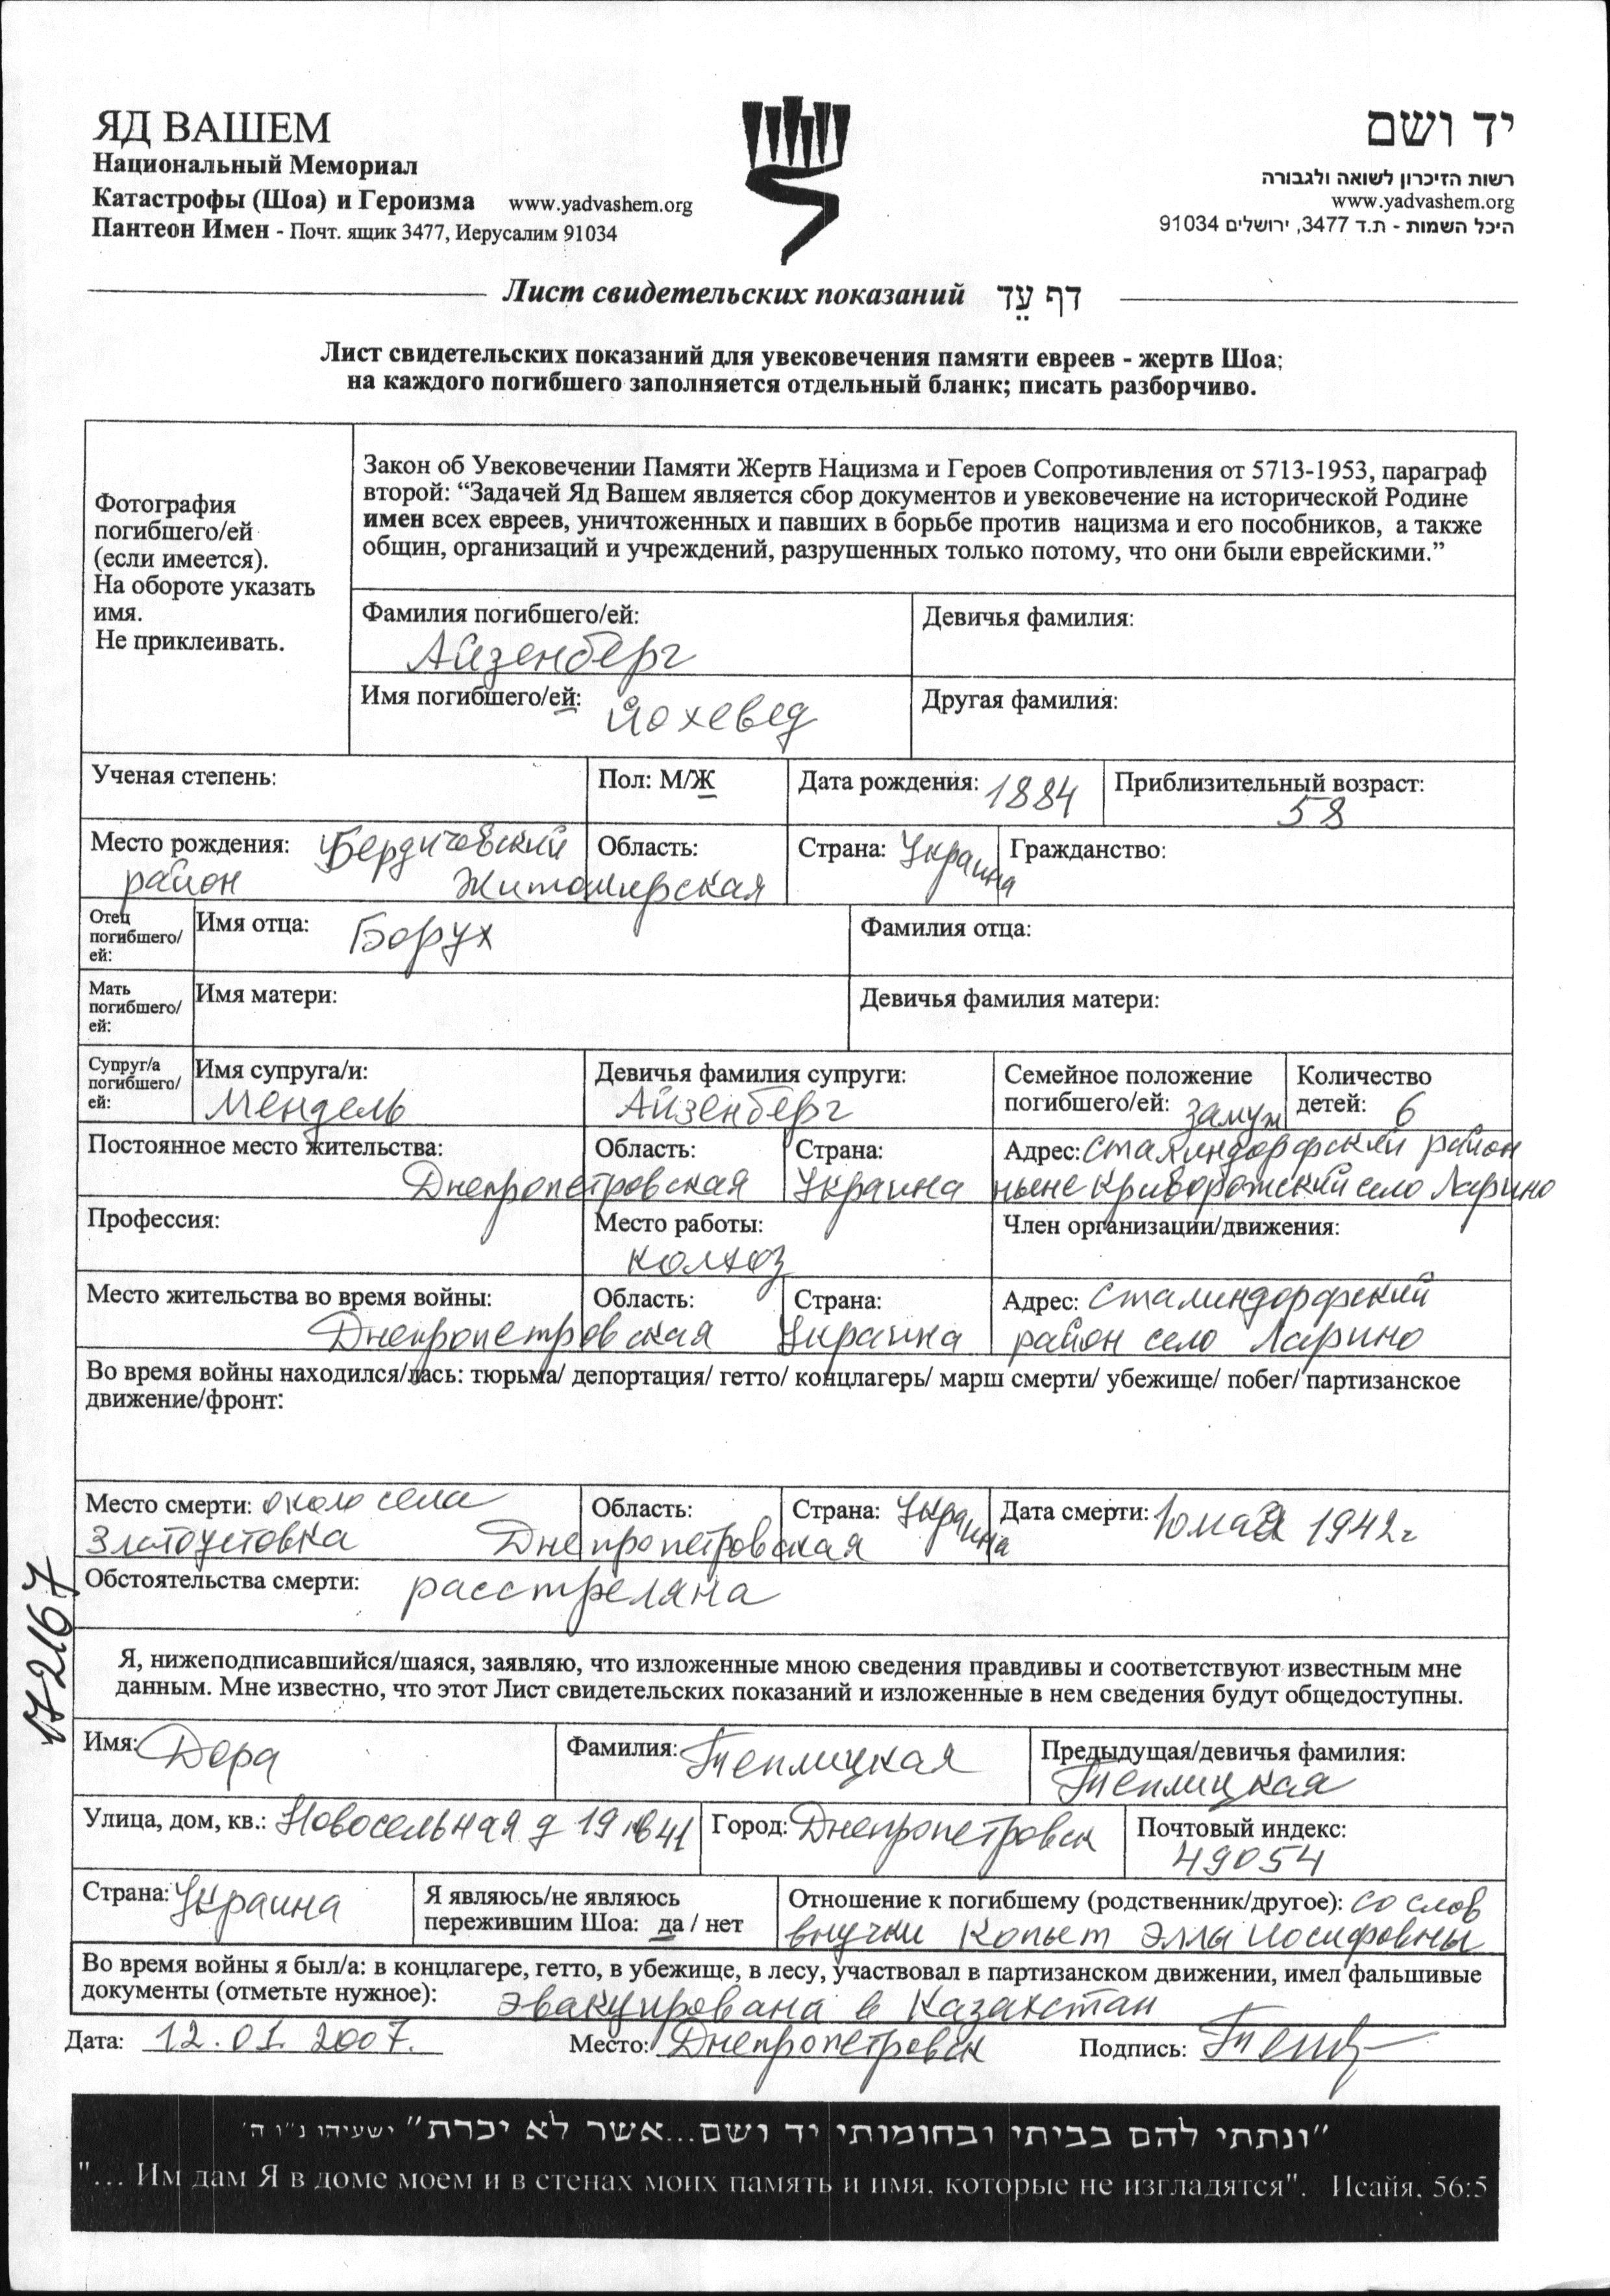 ЯД ВАШЕМ
Национальный Мемориал
Катастрофы (Шоа) и Героизма www.yadvashem.org
Пантеон Имен - Почт. ящик 3477, Иерусалим 91034
יד ושם
רשות הזיכרון לשואה ולגבורה
www.yadvashem.org
היכל השמות - ת.ד 3477, ירושלים 91034
Лист свидетельских показаний דף עֵד
Лист свидетельских показаний для увековечения памяти евреев - жертв Шоа;
на каждого погибшего заполняется отдельный бланк; писать разборчиво.
Фотография
погибшего/ей
(если имеется).
На обороте указать
имя.
Не приклеивать.
Закон об Увековечении Памяти Жертв Нацизма и Героев Сопротивления от 5713-1953, параграф
второй: “Задачей Яд Вашем является сбор документов и увековечение на исторической Родине
имен всех евреев, уничтоженных и павших в борьбе против нацизма и его пособников, а также
общин, организаций и учреждений, разрушенных только потому, что они были еврейскими.”
Фамилия погибшего/ей:
Айзенберг
Девичья фамилия:
Имя погибшего/ей: Йохевед
Другая фамилия:
Ученая степень:
Пол: М/Ж
Дата рождения: 1884
Приблизительный возраст:
58
Место рождения: Бердичевский
район
Область:
Житомирская
Страна: Украина
Гражданство:
Отец
погибшего/
ей:
Имя отца: Борух
Фамилия отца:
Мать
погибшего/
ей:
Имя матери:
Девичья фамилия матери:
Супруг/а
погибшего/
ей:
Имя супруга/и:
Мендель
Девичья фамилия супруги:
Айзенберг
Семейное положение
погибшего/ей: замуж
Количество
детей: 6
Постоянное место жительства:
Область:
Днепропетровская
Страна:
Украина
Адрес: Сталиндорфский район
ныне Криворожский село Ларино
Профессия:
Место работы:
колхоз
Член организации/движения:
Место жительства во время войны:
Область:
Днепропетровская
Страна:
Украина
Адрес: Сталиндорфский
район село Ларино
Во время войны находился/лась: тюрьма/ депортация/ гетто/ концлагерь/ марш смерти/ убежище/ побег/ партизанское
движение/фронт:
Место смерти: около села
Златоустовка
Область:
Днепропетровская
Страна: Украина
Дата смерти: 10 мая 1942г
Обстоятельства смерти: расстреляна
17267
Я, нижеподписавшийся/шаяся, заявляю, что изложенные мною сведения правдивы и соответствуют известным мне
данным. Мне известно, что этот Лист свидетельских показаний и изложенные в нем сведения будут общедоступны.
Имя: Дора
Фамилия: Теплицкая
Предыдущая/девичья фамилия:
Теплицкая
Улица, дом, кв.: Новосельная д 19 кв 41
Город: Днепропетровск
Почтовый индекс:
49054
Страна: Украина
Я являюсь/не являюсь
пережившим Шоа: да / нет
Отношение к погибшему (родственник/другое): со слов
внучки Копыт Эллы Иосифовны
Во время войны я был/а: в концлагере, гетто, в убежище, в лесу, участвовал в партизанском движении, имел фальшивые
документы (отметьте нужное): эвакуирована в Казахстан
Дата: 12.01.2007. Место: Днепропетровск Подпись:
"ונתתי להם בביתי ובחומותי יד ושם...אשר לא יכרת" ישעיהו נ"ו ה'
"... Им дам Я в доме моем и в стенах моих память и имя, которые не изгладятся". Исайя, 56:5